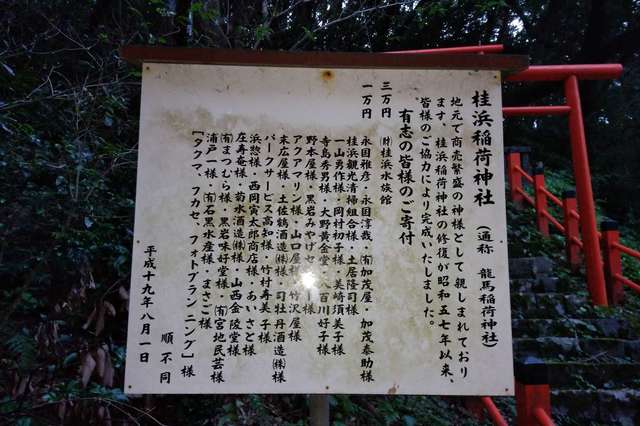 桂浜稲荷神社
(通称 龍馬稲荷神社)
地元で商売繁盛の神様として親しまれており
ます、桂浜稲荷神社の修復が昭和五七年以来、
皆様のご協力により完成いたしました。
有志の皆様のご寄付
三万円 ㈶桂浜水族館
一万円 永国雅彦・永国淳哉・㈲加茂屋・加茂泰助様
桂浜観光清掃組合様・土居隆司様
一山勇作様・岡村初子様・美崎須美子様
寺島秀男様・大野黄金堂様・八百川好子様
野本屋様・黒岩みやげセンター様
アクアマリン様・山口屋様・竹沢屋様
末広屋様・土佐鶴酒造㈱様・司牡丹酒造㈱様
パークサービス高知様・竹村寿美子様
浜惣様・西岡寅太郎商店様・あいさと様
庄寿庵様・菊水酒造㈱様・山西金陵堂様
㈲まつむら様・黒岩味好堂様・㈲宮地民芸様
浦戸一様・㈲石黒水産様・まさご様
[タクア、フカセ、フォトプランニング]様
順不同
平成十九年八月一日